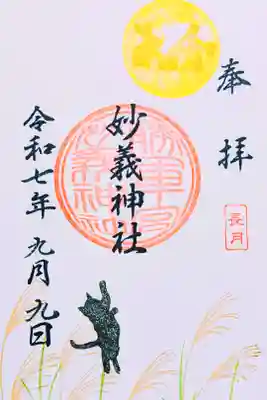 奉拝
長月
妙義神社
令和七年九月九日